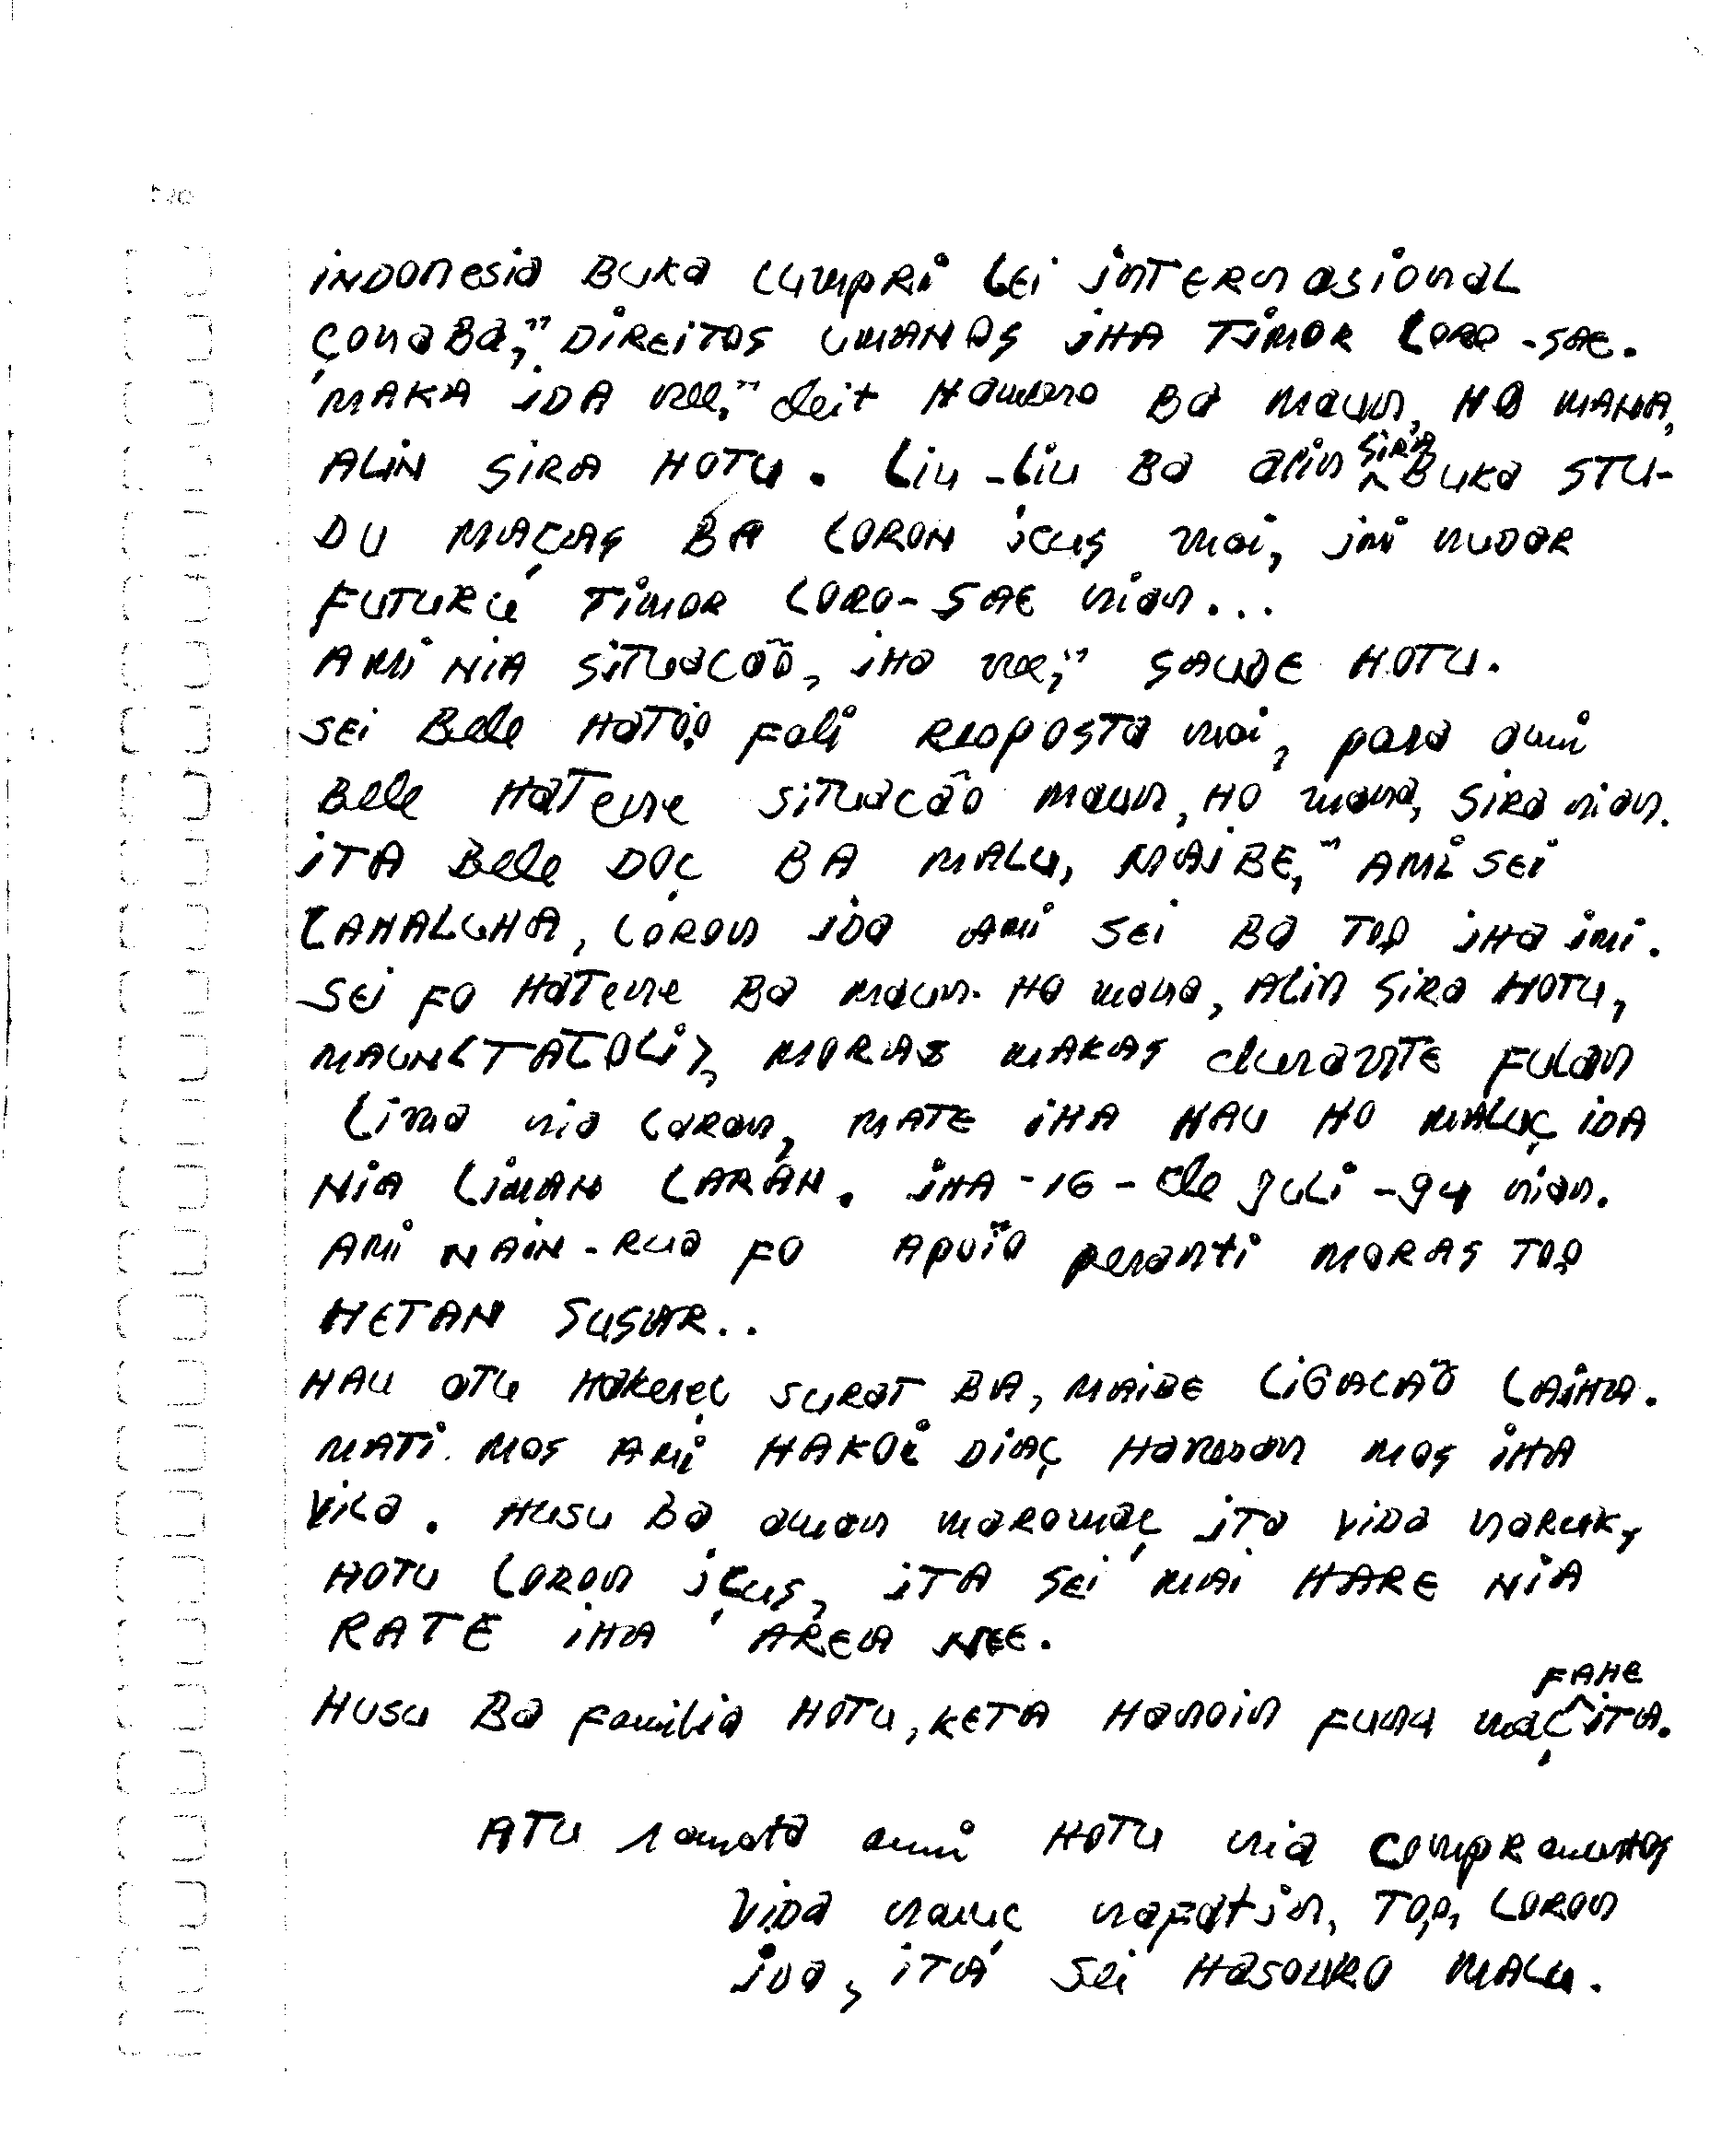 INDONESIA BUKA CUMPRI LEI INTERNASIONAL
ÇONABA," DIREITOS UMANOS IHA TIMOR LORO-SAE.
MAKA IDA NEE," deit HAMERO BA MAUN, HO MANA,
ALIN SIRA HOTU. LIU-LIU BA ALIN SIRA BUKA STU-
DU MAÇAS BA LORON ICUS MAI, IMI NUDAR
FUTURU TIMOR LORO-SAE NIAN...
AMI NIA SITUACÃO, IHA NEE," SAUDE HOTU.
SEI BELE HATOO FALI RESPOSTA MAI, PARA AMI
BELE HATENE SITUACÃO MAUN, HO MANA, SIRA NIAN.
ITA BELE DOÇ BA MALU, MAIBE," AMI SEI
LAHALUHA, LORON IDA AMI SEI BA TOO IHA IMI.
SEI FO HATENE BA MAUN HO MANA, ALIN SIRA HOTU,
MAUN (TATOLI), MORAS MAKAS DURANTE FULAN
LIMA NIA LARAN, MATE IHA HAU HO MALUÇ IDA
NIA LIMAN LARAN. IHA -16- de JULI -94 NIAN.
AMI NAIN-RUA FO APOIO PERANTI MORAS TOO
HETAN SUSAR..
HAU ATU HAKEREC SURAT BA, MAIBE LIGACAÕ LAIHA.
MATI MOS AMI HAKOI DIAÇ HANESAN MOS IHA
VILA. HUSU BA AMAN MAROMAÇ ITA VIDA NARUK,
HOTU LORON IÇUS, ITA SEI MAI HARE NIA
RATE IHA AREA NEE.
HUSU BA FAMILIA HOTU, KETA HANOIN FUNU MAÇ FAHE ITA.
ATU RAMATA AMI HOTU NIA COMPRAMENTOS
VIDA NARUÇ NAFATIN, TOO, LORON
IDA, ITA SEI HASOURO MALU.